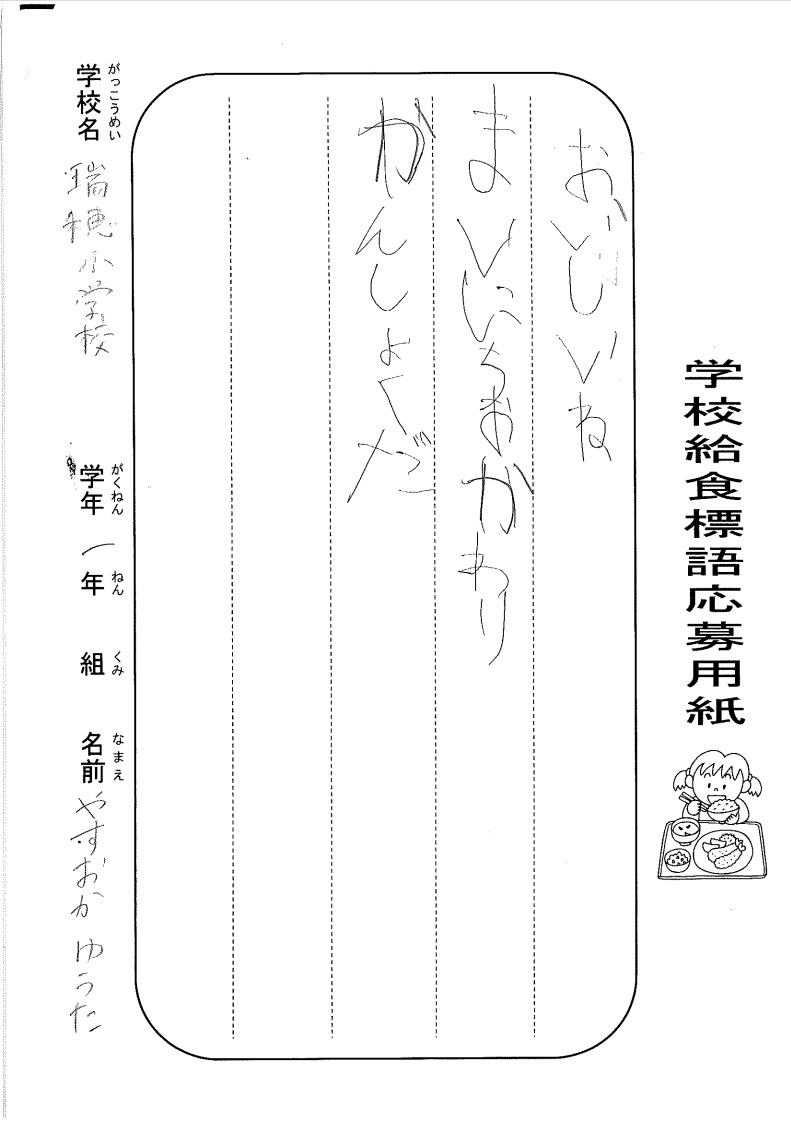 学校給食標語応募用紙
おいしいね
まいにちおかわり
かんしょくだ
学校名 瑞穂小学校
がっこうめい
学年 一年 組 名前 やすおか ゆうた
がくねん ねん くみ なまえ